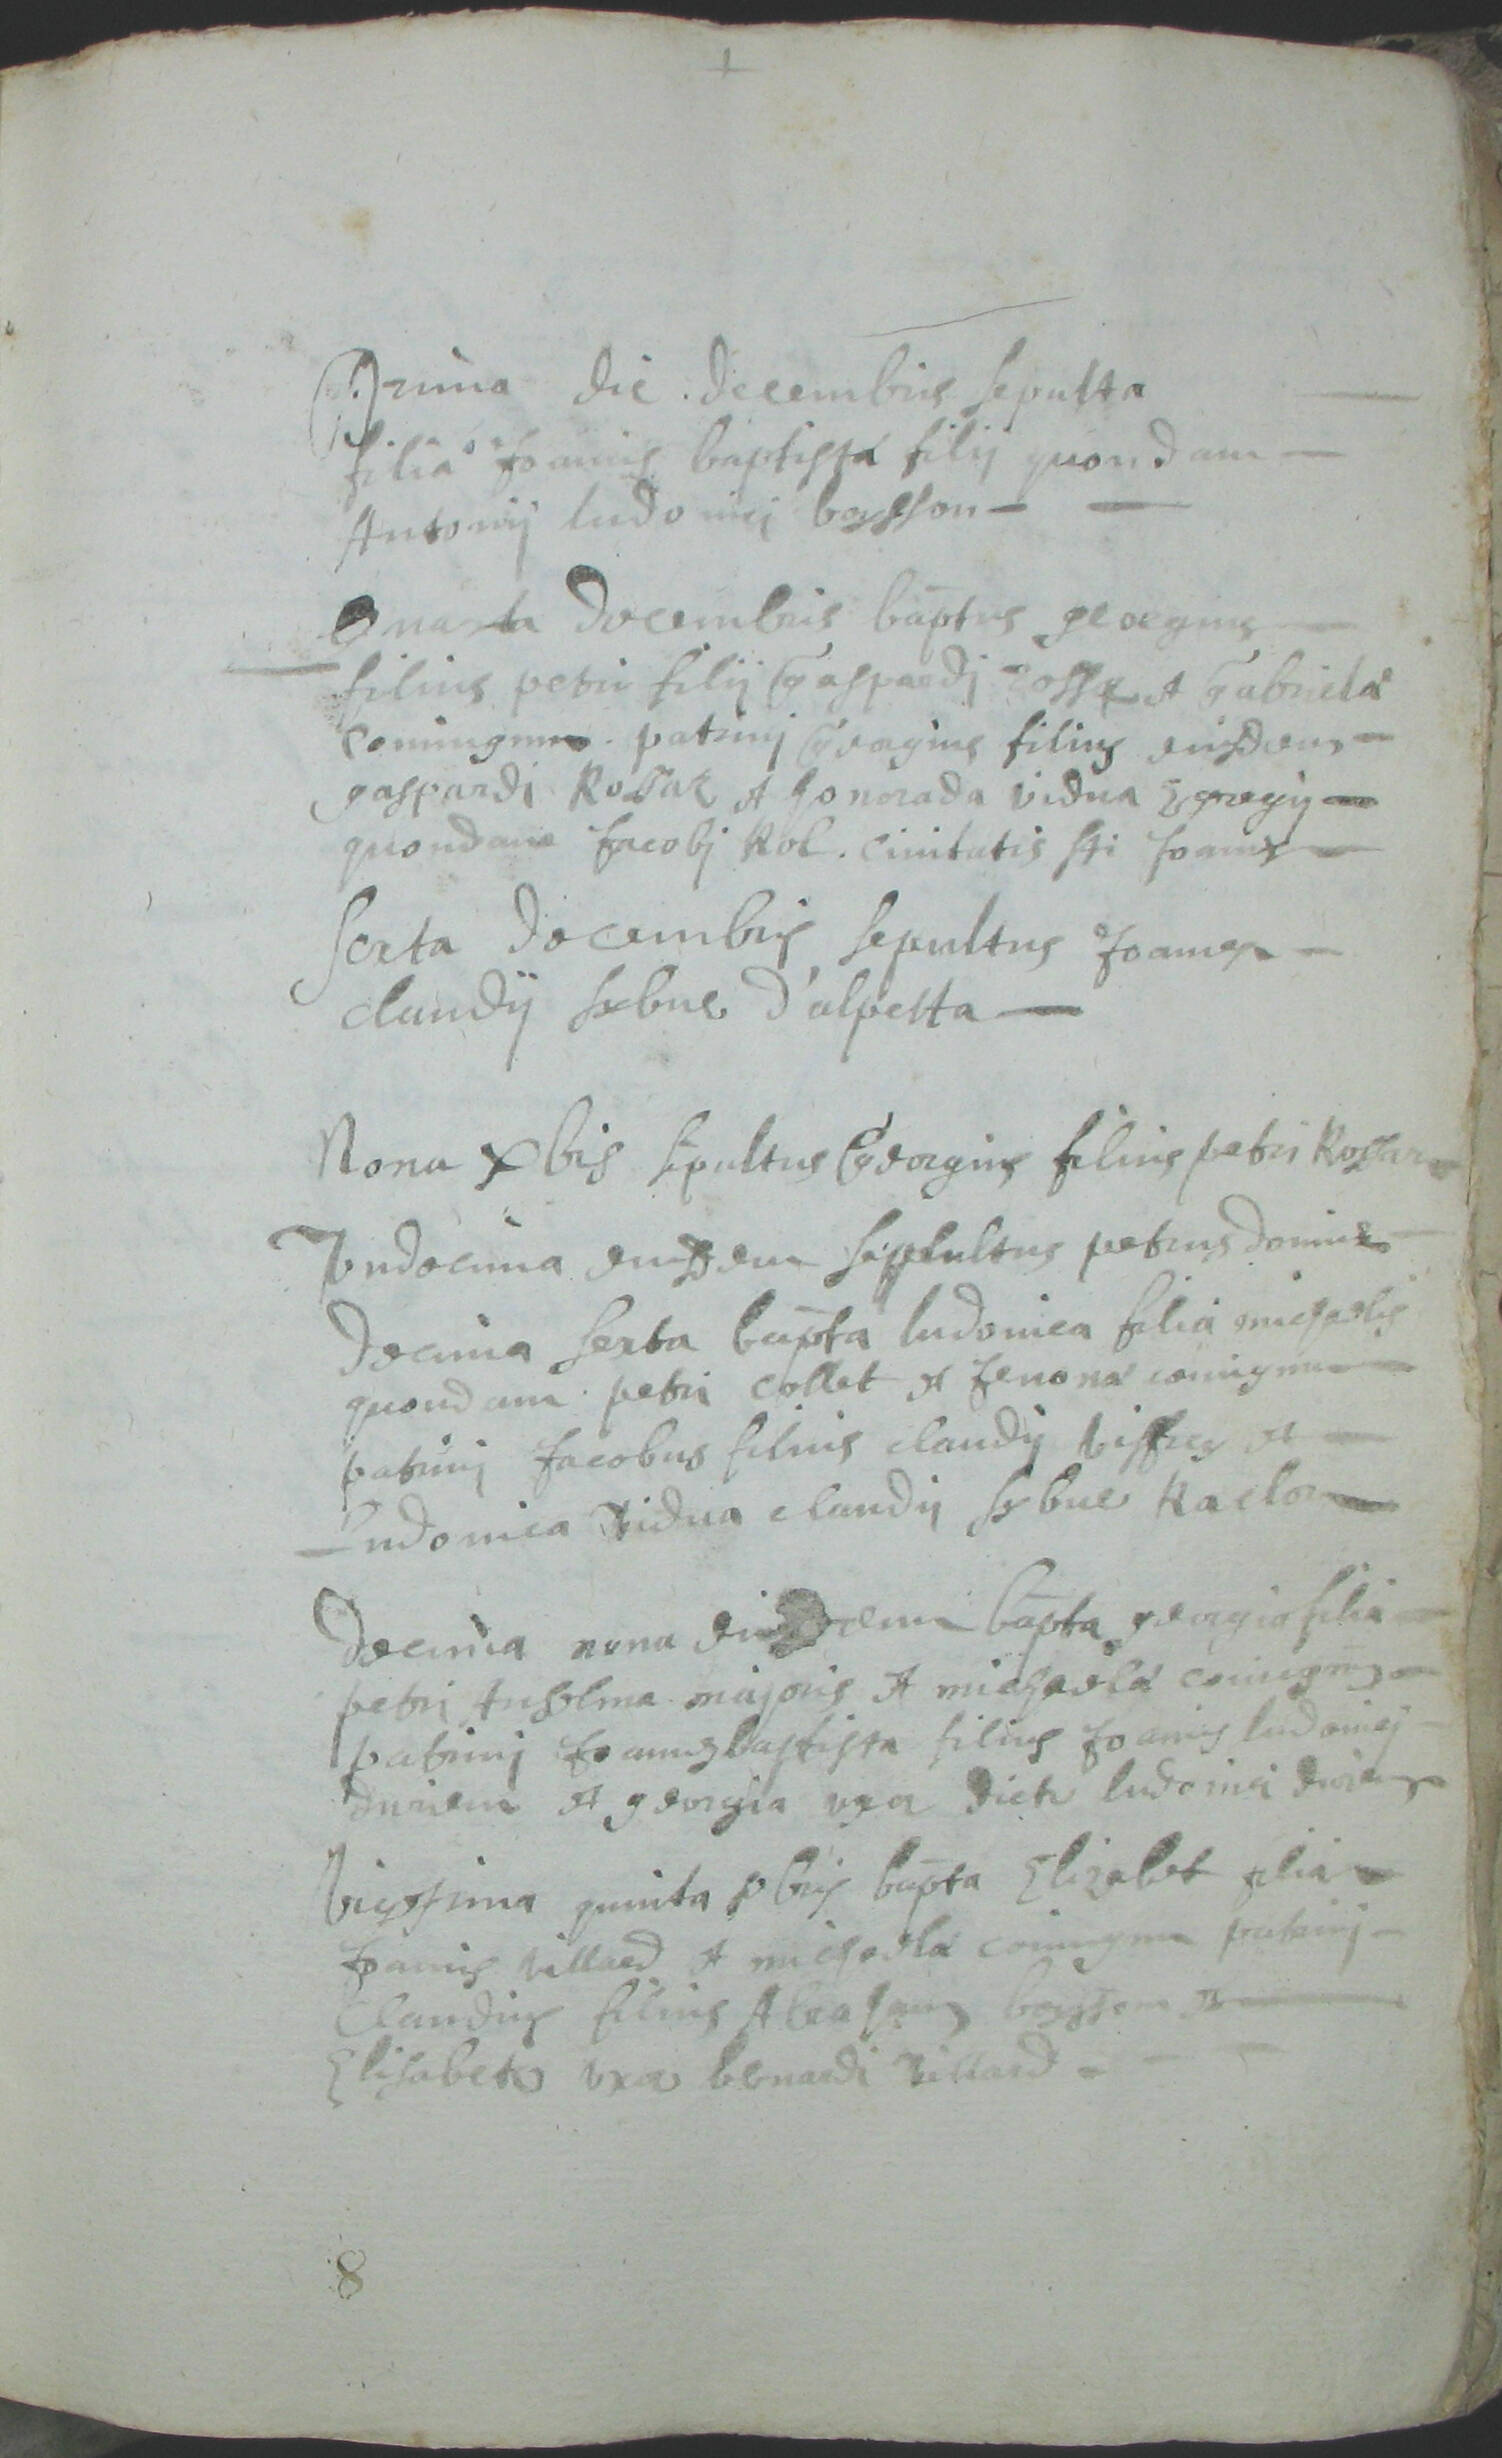 Prima die decembris sepulta
filia Joannis baptistæ filij quondam
Antonij ludovici bosson
Quarta decembris bāptus georgius
filius petri filij Gaspardi Et Gabrielæ
coniugum. patrinj Georgius filius eiusdem
gaspardi Rossaz Et honorada vidua Egregij
quondam Jacobj Rol. civitatis sti Joannis
Sexta decembris sepultus Joannes
claudij d'alpetta
Nona Xbis sepultus Georgius filius petri Rossaz
Vndecima eiusdem sepultus petrus
Decima sexta bāpta ludovica filia michaelis
quondam petri collet Et coniugum
patrinj Jacobus filius claudij Et
ludovica vidua claudij
Decima nona eiusdem bāpta georgia filia
petri Anselme majoris Et michaelæ coniugum
patrinj Joannes baptista filius Joannis ludovicj
durieu Et georgia uxor dicti ludovici durieu
Vigesima quinta Xbris bāpta Elizabet filia
Joannis villard Et michaelæ coniugum patrinj
Claudius filius bosson Et
Elisabet uxor bernardi villard
8